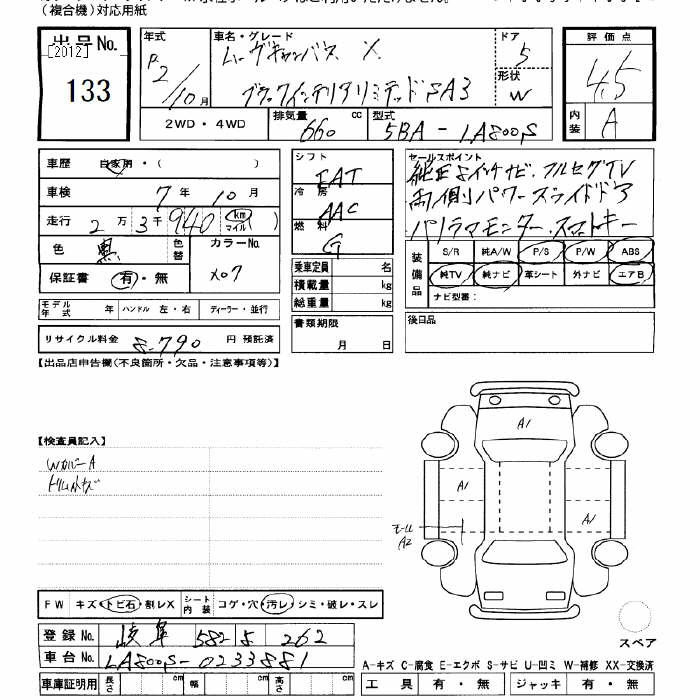 （複合機）対応用紙
出品No.
[2012]
133
年式
R2/10月
車名・グレード
ムーヴキャンバス X
ブラックインテリアリミテッドSA3
ドア
5
形状
W
評価点
4.5
内装
A
2WD・4WD
排気量
660 cc
型式
5BA-LA800S
車歴 自家用・( )
車検 7年10月
走行 2万3千940 km マイル
色 黒 色替
カラーNo.
X07
保証書 有・無
モデル年式 年 ハンドル 左・右 ディーラー・並行
リサイクル料金 8.790 円 預託済
シフト
IAT
冷房
AAC
燃料
G
乗車定員 名
積載量 kg
総重量 kg
書類期限
月 日
セールスポイント
純正8インチナビ、フルセグTV
両側パワースライドドア
パノラマモニター、スマートキー
装備品
S/R 純A/W P/S P/W ABS
純TV 純ナビ 革シート 外ナビ エアB
ナビ型番：
後日品
【出品店申告欄(不良箇所・欠品・注意事項等)】
【検査員記入】
WカバーA
トリム小キズ
A1
A1
A1
モール
A2
FW キズ・トビ石・割レX シート内装 コゲ・穴・汚レ・シミ・破レ・スレ
登録No. 岐阜 582 る 262
車台No. LA800S-0233881
車庫証明用 長さ cm 幅 cm 高さ cm
スペア
A-キズ C-腐食 E-エクボ S-サビ U-凹ミ W-補修 XX-交換済
工具 有・無 ジャッキ 有・無